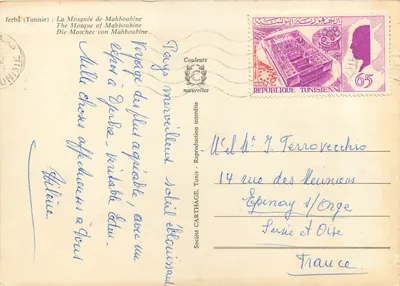 Jerba (Tunisie) : La Mosquée de Mahboubine
The Mosque of Mahboubine
Die Moschee von Mahboubine
Pays merveilleux, soleil éblouissant
Voyage des plus agréable, avec un
repos à Djerba - véritable Eden.
Mille choses affectueuses à vous
Hélène
Couleurs
C
naturelles
Société CARTHAGE, Tunis - Reproduction interdite
REPUBLIQUE TUNISIENNE
65
TUNISIE
J. Terrovecchio
14 rue des Meuniers
Epinay s/Orge
Seine et Oise
France